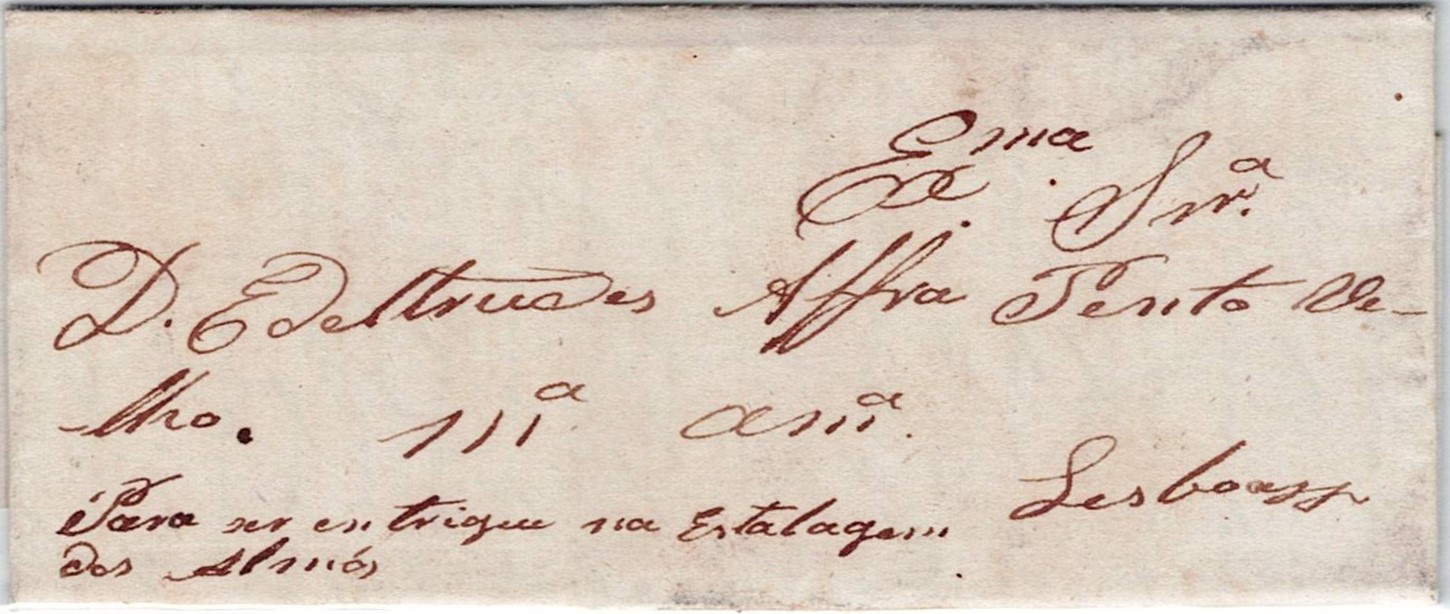 Exma Snrª
D. Edeltrudes Affra Pento Ve-
lho. Mª Amª.
Lesboa
Para ser entrigue na Estalagem
dos Almós